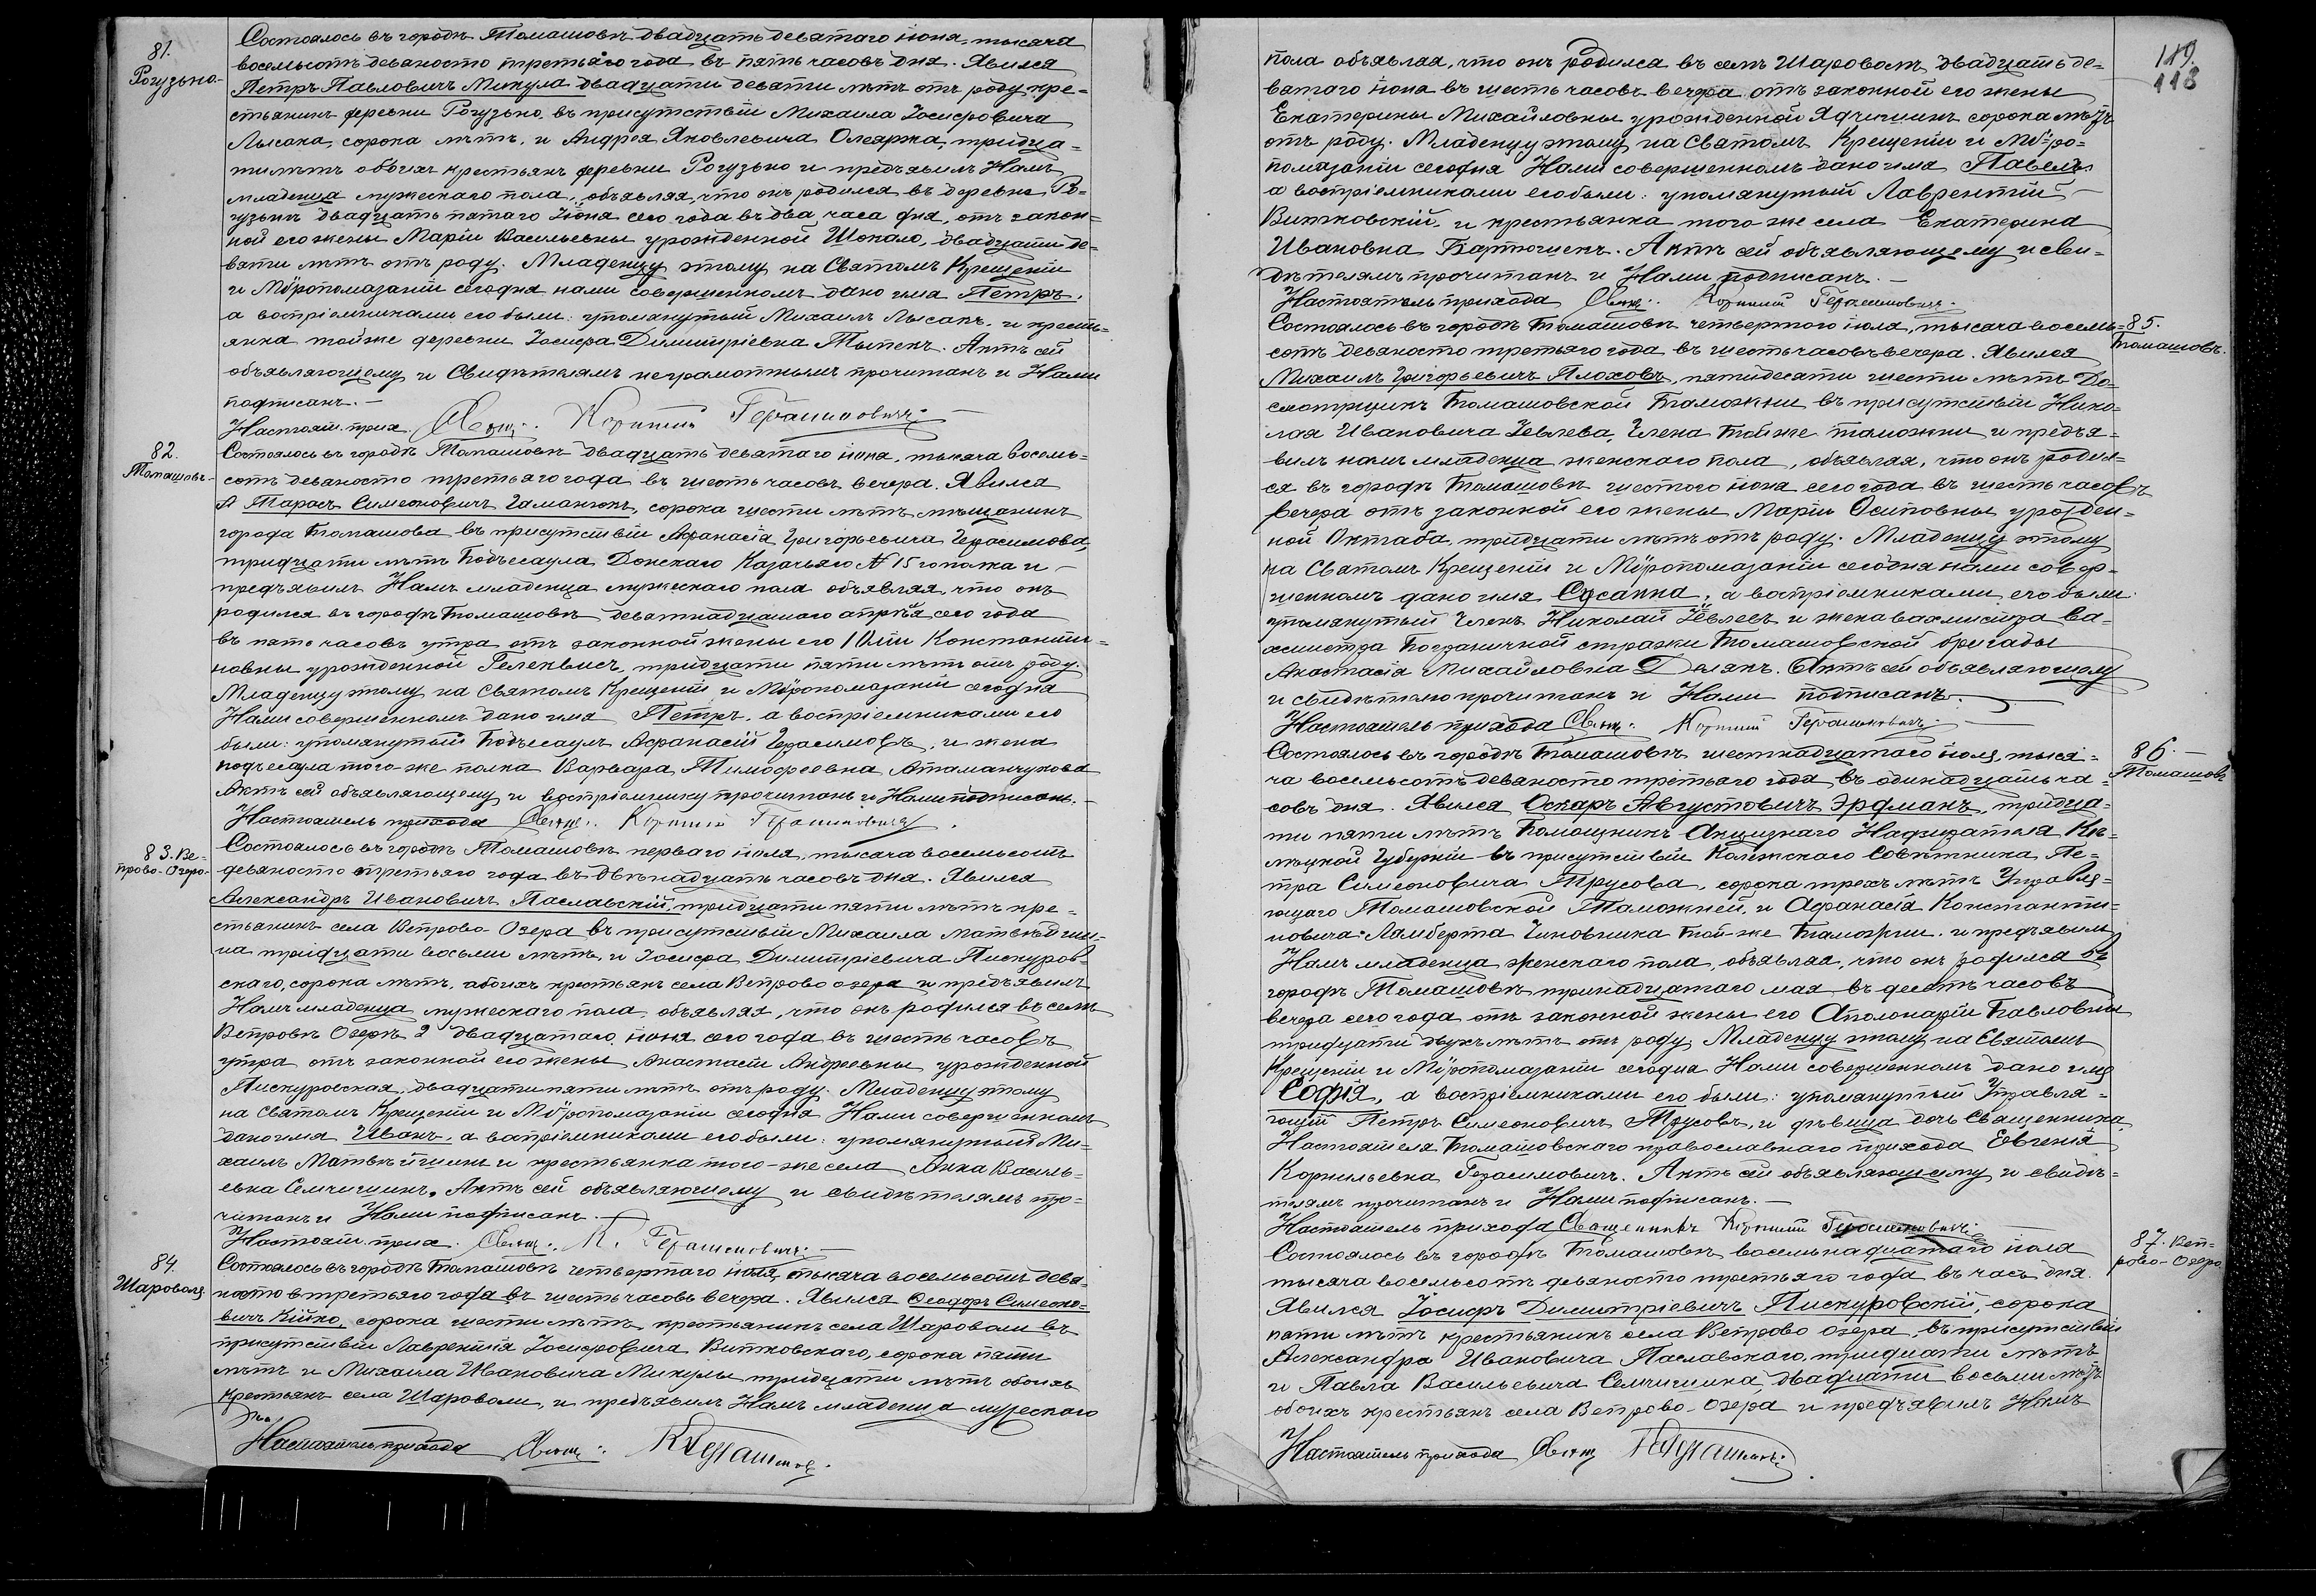 81.
Рогузьно.
Состоялось въ городѣ Томашовѣ двадцать девятаго іюня, тысяча
восемьсотъ девяносто третьяго года въ пять часовъ дня. Явился
Петръ Павловичъ Микула двадцати девяти лѣтъ отъ роду, кре-
стьянинъ деревни Рогузьно, въ присутствіи Михаила Іосифовича
Лысака, сорока лѣтъ, и Андрея Яковлевича Олеярка, тридца-
ти лѣтъ обоихъ крестьянъ деревни Рогузьно и предъявилъ Намъ
младенца мужескаго пола, объявляя, что онъ родился въ деревнѣ Ро-
гузьнѣ двадцать пятаго Іюня сего года въ два часа дня, отъ закон-
ной его жены Маріи Васильевны урожденной Шокало, двадцати де-
вяти лѣтъ отъ роду. Младенцу этому на Святомъ Крещеніи
и Мѵропомазаніи сегодня нами совершенномъ дано имя Петръ,
а воспріемниками его были: упомянутый Михаилъ Лысакъ, и кресть-
янка тойже деревни Іосифа Димитріевна Тыпекъ. Актъ сей
объявляющему и Свидѣтелямъ неграмотнымъ прочитанъ и Нами
подписанъ. —
Настоят. прих. Свящ. Корнилій Герасимовичъ
82.
Томашовъ.
Состоялось въ городѣ Томашовѣ двадцать девятаго іюня, тысяча восемь-
сотъ девяносто третьяго года въ шесть часовъ вечера. Явился
Тарасъ Симеоновичъ Гаманюкъ, сорока шести лѣтъ мѣщанинъ
города Томашова въ присутствіи Афанасія Григорьевича Герасимова,
тридцати лѣтъ Подъесаула Донскаго Казачьяго № 15 го полка и —
предъявилъ Намъ младенца мужескаго пола объявляя, что онъ
родился въ городѣ Томашовѣ девятнадцатаго апрѣля сего года
въ пять часовъ утра отъ законной жены его Юліи Константи-
новны урожденной Гелеквисъ, тридцати пяти лѣтъ отъ роду.
Младенцу этому на Святомъ Крещеніи и Мѵропомазаніи сегодня
Нами совершенномъ дано имя Петръ, а воспріемниками его
были: упомянутый Подъесаулъ Афанасій Герасимовъ, и жена
подъесаула того-же полка Варвара Тимофеевна Атаманчукова
Актъ сей объявляющему и воспріемнику прочитанъ и Нами подписанъ. —
Настоятель прихода Свящ. Корнилій Герасимовичъ.
83. Ве-
прово-Озеро.
Состоялось въ городѣ Томашовѣ перваго іюля, тысяча восемьсотъ
девяносто третьяго года въ двѣнадцать часовъ дня. Явился
Александръ Ивановичъ Паславскій, тридцати пяти лѣтъ кре-
стьянинъ села Вепрово-Озера въ присутствіи Михаила Матвѣйши-
на тридцати восьми лѣтъ, и Іосифа Димитріевича Пискуров-
скаго, сорока лѣтъ, обоихъ крестьянъ села Вепрово озера и предъявилъ
Намъ младенца мужескаго пола, объявляя, что онъ родился въ селѣ
Вепровѣ Озерѣ двадцатаго іюня сего года въ шесть часовъ
утра отъ законной его жены Анастасіи Андреевны урожденной
Пискуровская, двадцати пяти лѣтъ отъ роду. Младенцу этому
на Святомъ Крещеніи и Мѵропомазаніи сегодня Нами совершенномъ
дано имя Иванъ, а воспріемниками его были: упомянутый Ми-
хаилъ Матвѣйшинъ и крестьянка того-же села Анна Василь-
евна Семчишинъ. Актъ сей объявляющему и свидѣтелямъ про-
читанъ и Нами подписанъ. —
Настоят. прих. Свящ. К. Герасимовичъ —
84.
Шароволя
Состоялось въ городѣ Томашовѣ четвертаго іюля, тысяча восемьсотъ девя-
носто третьяго года въ шесть часовъ вечера. Явился Ѳеодоръ Симеоно-
вичъ Кійко, сорока шести лѣтъ крестьянинъ села Шароволи въ
присутствіи Лаврентія Іосифовича Витковскаго, сорока пяти
лѣтъ и Михаила Ивановича Микулы тридцати лѣтъ обоихъ
крестьянъ села Шароволи, и предъявилъ Намъ младенца мужескаго
Настоятель прихода Свящ.
119.
113
пола объявляя, что онъ родился въ селѣ Шароволѣ двадцать де-
вятаго іюня въ шесть часовъ вечера отъ законной его жены
Екатерины Михайловны урожденной Ядчишинъ сорока лѣтъ
отъ роду. Младенцу этому на Святомъ Крещеніи и Мѵро-
помазаніи сегодня Нами совершенномъ дано имя Павелъ
а воспріемниками его были: упомянутый Лаврентій —
Витковскій, и крестьянка того же села Екатерина
Ивановна Бартошекъ. Актъ сей объявляющему и сви-
дѣтелямъ прочитанъ и Нами подписанъ. —
Настоятель прихода Свящ. Корнилій Герасимовичъ.
85.
Томашовъ.
Состоялось въ городѣ Томашовѣ четвертого іюля, тысяча восемь-
сотъ девяносто третьяго года въ шесть часовъ вечера. Явился
Михаилъ Григорьевичъ Плоховъ, пятидесяти шести лѣтъ До-
смотрщикъ Томашовской Таможни въ присутствіи Нико-
лая Ивановича Іевлева, Члена той же таможни и предъя-
вилъ намъ младенца женскаго пола, объявляя, что онъ родил-
ся въ городѣ Томашовѣ шестого іюня сего года въ шесть часовъ
вечера отъ законной его жены Маріи Осиповны урожден-
ной Октаба, тридцати лѣтъ отъ роду. Младенцу этому
на Святомъ Крещеніи и Мѵропомазаніи сегодня нами совер-
шенномъ дано имя Сусанна, а воспріемниками его были:
упомянутый Членъ Николай Іевлевъ и жена вахмистра Ва-
хмистра Пограничной стражи Томашовской бригады
Анастасія Михайловна Делякъ. Актъ сей объявляющему
и свидѣтелю прочитанъ и Нами подписанъ. —
Настоятель прихода Свящ. Корнилій Герасимовичъ. —
86. —
Томашовъ
Состоялось въ городѣ Томашовѣ шестнадцатаго іюля, тыся-
ча восемьсотъ девяносто третьяго года въ одинадцать ча-
совъ дня. Явился Оскаръ Августовичъ Эрдманъ, тридца-
ти пяти лѣтъ Помощникъ Акцизнаго Надзирателя Кѣ-
лецкой Губерніи въ присутствіи Колежскаго Совѣтника Пе-
тра Симеоновича Трусова, сорока трехъ лѣтъ Управля-
ющаго Томашовской Таможней, и Афанасія Константи-
новича Ламберта Чиновника той-же Таможни. и предъявилъ
Намъ младенца женскаго пола, объявляя, что онъ родился въ
городѣ Томашовѣ тринадцатаго мая въ десять часовъ
вечера сего года отъ законной жены его Аполонаріи Павловны
тридцати двухъ лѣтъ отъ роду. Младенцу этому на Святомъ
Крещеніи и Мѵропомазаніи сегодня Нами совершенномъ дано имя
Софія, а воспріемниками его были: упомянутый Управля-
ющій Петръ Симеоновичъ Трусовъ, и дѣвица дочь Священника
Настоятеля Томашовскаго православнаго прихода Евгенія
Корнильевна Герасимовичъ. Актъ сей объявляющему и свидѣ-
телямъ прочитанъ и Нами подписанъ. —
Настоятель прихода Священникъ Корнилій Герасимовичъ
87. Веп-
рово-Озеро
Состоялось въ городѣ Томашовѣ восемьнадцатаго іюля
тысяча восемьсотъ девяносто третьяго года въ часъ дня.
Явился Іосифъ Димитріевичъ Пискуровскій, сорока
пяти лѣтъ крестьянинъ села Вепрово озера, въ присутствіи
Александра Ивановича Паславскаго, тридцати лѣтъ
и Павла Васильевича Семчишина, двадцати восьми лѣтъ
обоихъ крестьянъ села Вепрово-Озера и предъявилъ Намъ
Настоятель прихода Свящ